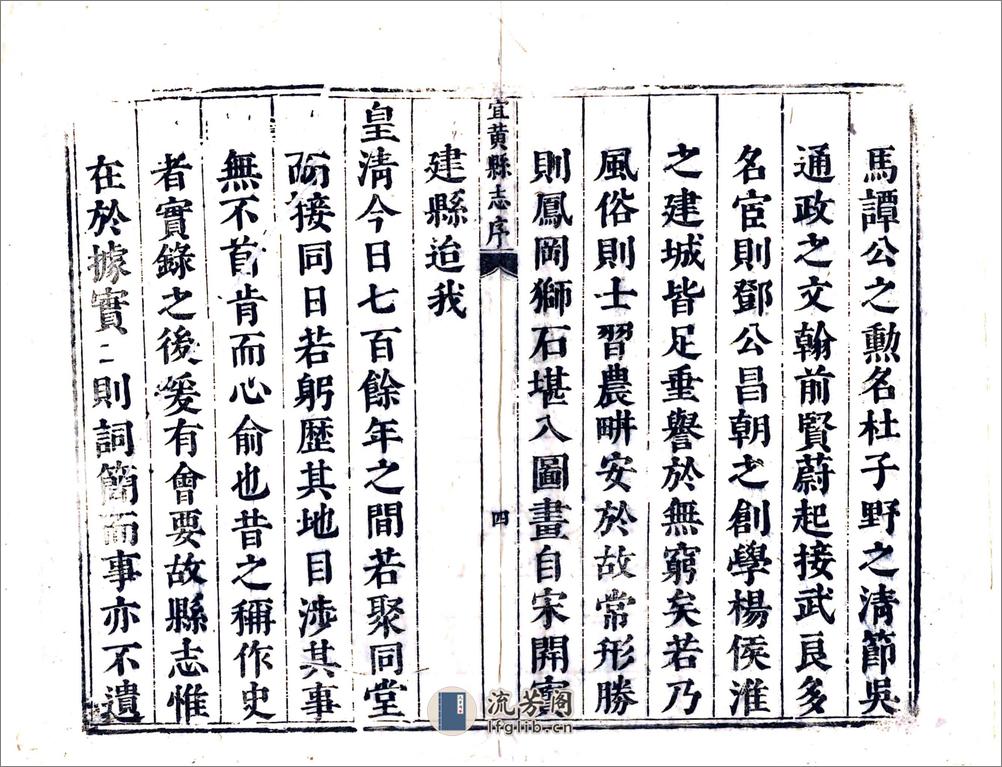 馬譚公之勲名杜子野之清節吳
通政之文翰前賢蔚起接武良多
名宦則鄧公昌朝之創學楊侯淮
之建城皆足垂譽於無窮矣若乃
風俗則士習農畊安於故常形勝
則鳳岡獅石堪入圖畫自宋開寶
宜黃縣志序
四
建縣迨我
皇淸今日七百餘年之間若聚同堂
而接同日若躬歷其地目涉其事
無不首肯而心俞也昔之稱作史
者實錄之後爰有會要故縣志惟
在於據實二則詞簡而事亦不遺
流芳閣
lfglib.cn